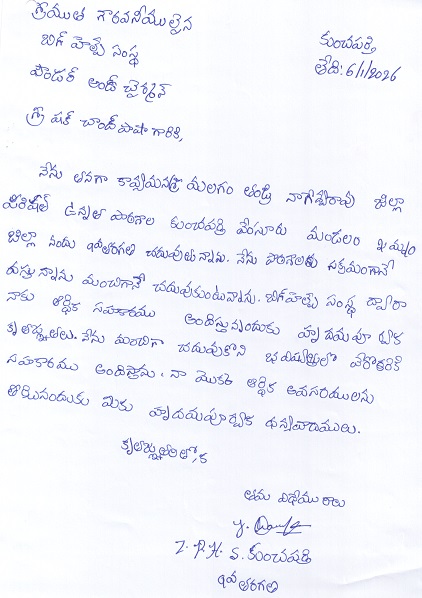 శ్రీయుత గౌరవనీయులైన
బిగ్ హెల్ప్ సంస్థ
ఫౌండర్ అండ్ చైర్మన్
కుంచపర్తి
తేది: 6/1/2026
శ్రీ షేక్ చాంద్ పాషా గారికి,
నేను అనగా కావ్యమనశ్రీ మలగం తండ్రి నాగేశ్వరావు జిల్లా
పరిషత్ ఉన్నత పాఠశాల కుంచపర్తి వేంసూరు మండలం ఖమ్మం
జిల్లా నందు 10వ తరగతి చదువుతున్నాను. నేను పాఠశాలకు సక్రమంగానే
వస్తున్నాను మంచిగానే చదువుకుంటున్నాను. బిగ్ హెల్ప్ సంస్థ ద్వారా
నాకు ఆర్థిక సహకారము అందిస్తున్నందుకు హృదయపూర్వక
కృతజ్ఞతలు. నేను మంచిగా చదువుకొని భవిష్యత్తులో వేరొకరికి
సహకారము అందిస్తాను. నా యొక్క ఆర్థిక అవసరములను
తీర్చినందుకు మీకు హృదయపూర్వక ధన్యవాదములు.
కృతజ్ఞతలతో,
తమ విధేయురాలు
Z.P.H.S. కుంచపర్తి
10వ తరగతి